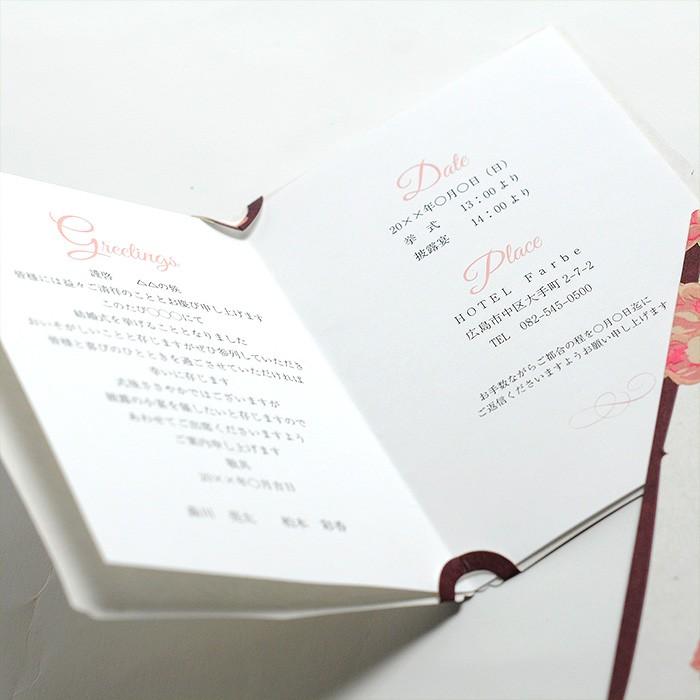 Greetings
謹啓　△△の候
皆様には益々ご清祥のこととお慶び申し上げます
このたび〇〇〇にて
結婚式を挙げることとなりました
おいそがしいことと存じますがぜひ参列していただき
皆様と喜びのひとときを過ごさせていただければ
幸いに存じます
式後ささやかではございますが
披露の小宴を催したいと存じますので
あわせてご出席くださいますよう
ご案内申し上げます
敬具
20××年〇月吉日
松本
Date
20××年〇月〇日（日）
挙　式　13：00 より
披露宴　14：00 より
Place
HOTEL Farbe
広島市中区大手町 2-7-2
TEL 082-545-0500
お手数ながらご都合の程を〇月〇日迄に
ご返信くださいますようお願い申し上げます